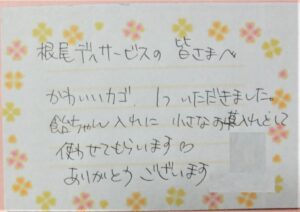 根尾デイサービスの 皆さまへ
かわいいカゴ、1つ いただきました。
飴ちゃん入れに 小さなお菓子入れとして
使わせてもらいます♡
ありがとう ございます